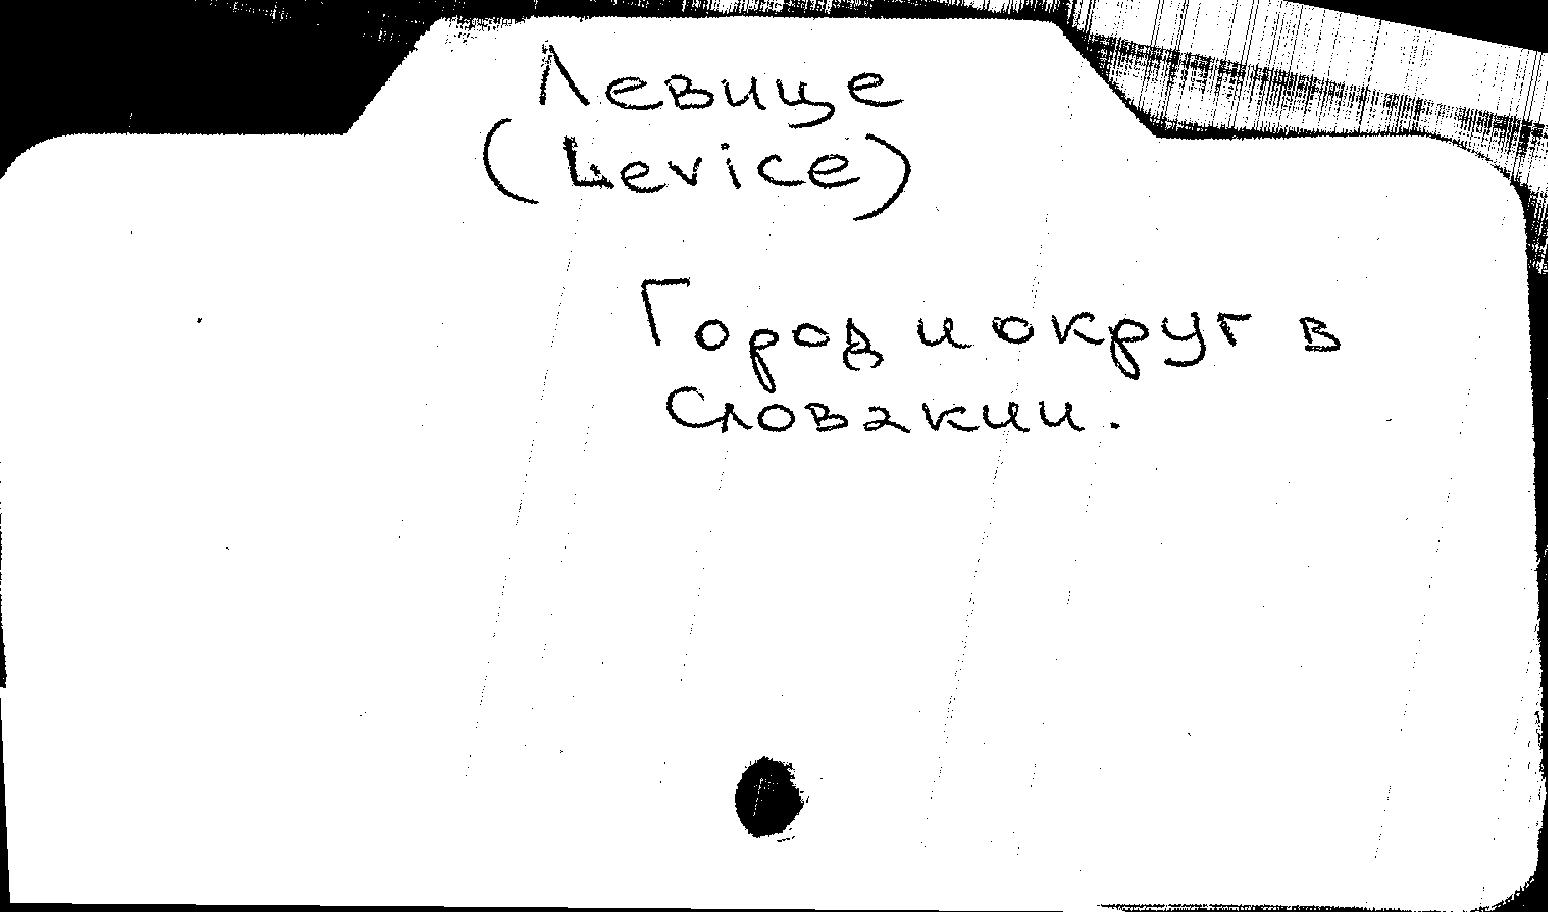 Левице
(Levice)
Город и округ в
Словакии.